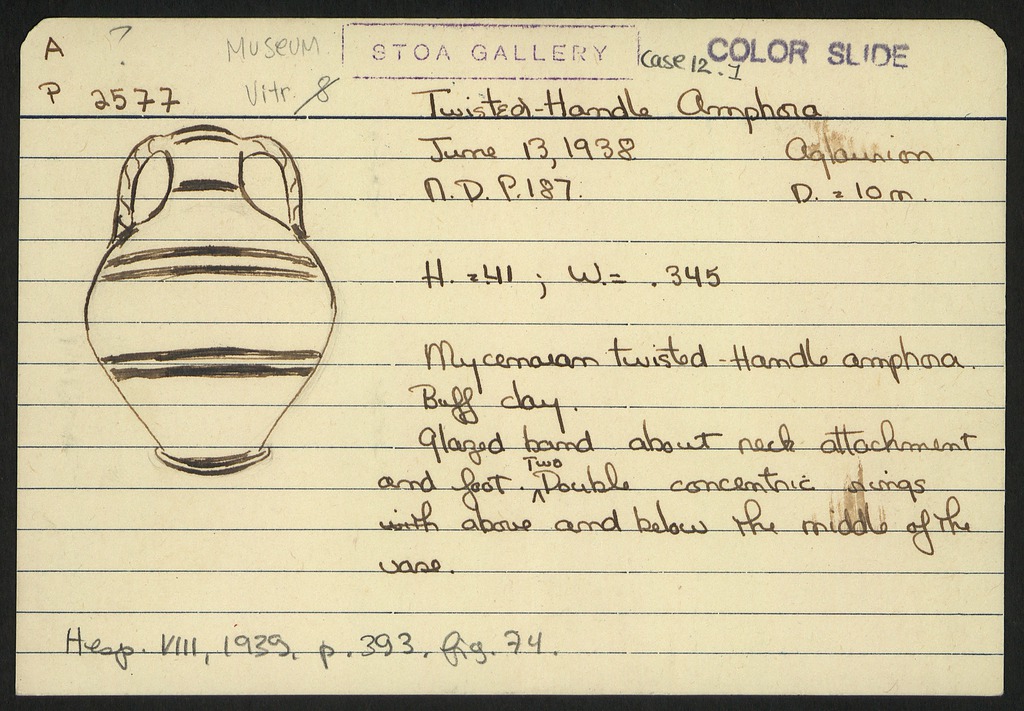 A ? Museum STOA GALLERY Case 12.1 COLOR SLIDE
P 2577 Vitr. 8 Twisted-Handle Amphora
June 13, 1938 Aglaurion
N.D. P.187. D. = 10 m.
H. = .41 ; W. = .345
Mycenaean twisted-Handle amphora.
Buff clay.
Glazed band about neck attachment
and foot. Two Double concentric rings
with above and below the middle of the
vase.
Hesp. VIII, 1939, p. 393, fig. 74.